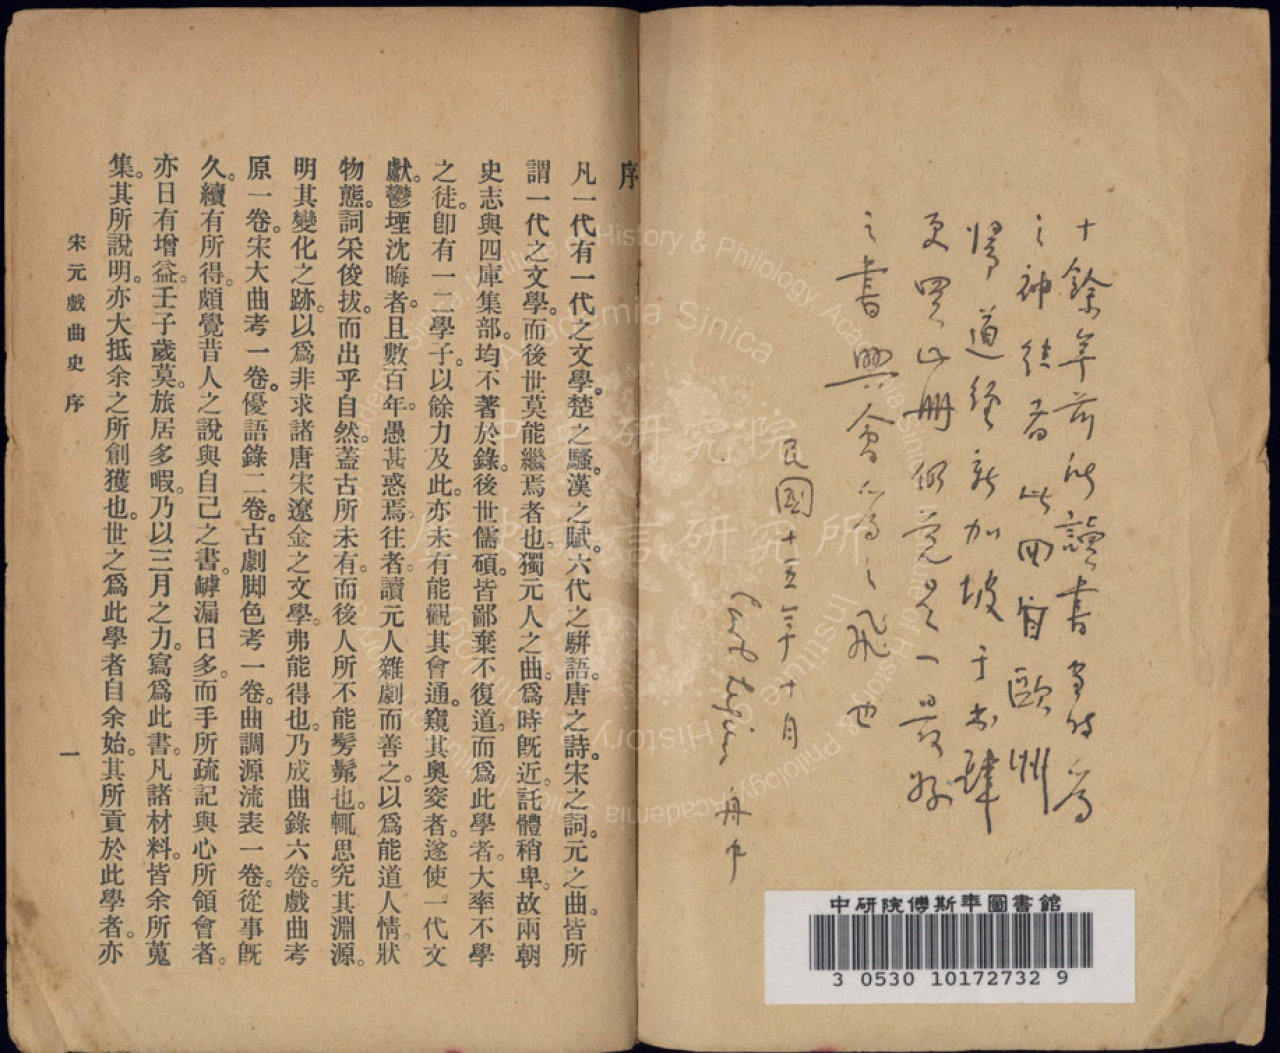 十餘年前所讀書多能爲
之神往者此四皆歐洲
歸道經新加坡于書肆
更買此册似覺是一最好
之書興會爲之飛也
民國十五年十月
舟中
中研院傅斯年圖書館
3 0530 10172732 9
序
凡一代有一代之文學。楚之騷。漢之賦。六代之騈語。唐之詩。宋之詞。元之曲。皆所
謂一代之文學。而後世莫能繼焉者也。獨元人之曲。爲時旣近。託體稍卑。故兩朝
史志與四庫集部。均不著於錄。後世儒碩。皆鄙棄不復道。而爲此學者。大率不學
之徒。卽有一二學子。以餘力及此。亦未有能觀其會通。窺其奧窔者。遂使一代文
獻。鬱堙沈晦者。且數百年。愚甚惑焉。往者。讀元人雜劇而善之。以爲能道人情。狀
物態。詞采俊拔。而出乎自然。蓋古所未有。而後人所不能髣髴也。輒思究其淵源。
明其變化之跡。以爲非求諸唐宋遼金之文學。弗能得也。乃成曲錄六卷。戲曲考
原一卷。宋大曲考一卷。優語錄二卷。古劇脚色考一卷。曲調源流表一卷。從事旣
久。續有所得。頗覺昔人之說與自己之書。罅漏日多。而手所疏記與心所領會者。
亦日有增益。壬子歲莫。旅居多暇。乃以三月之力。寫爲此書。凡諸材料。皆余所蒐
集。其所說明。亦大抵余之所創獲也。世之爲此學者自余始。其所貢於此學者。亦
宋元戲曲史 序
一
中央研究院
歷史語言研究所
Institute of History & Philology, Academia Sinica